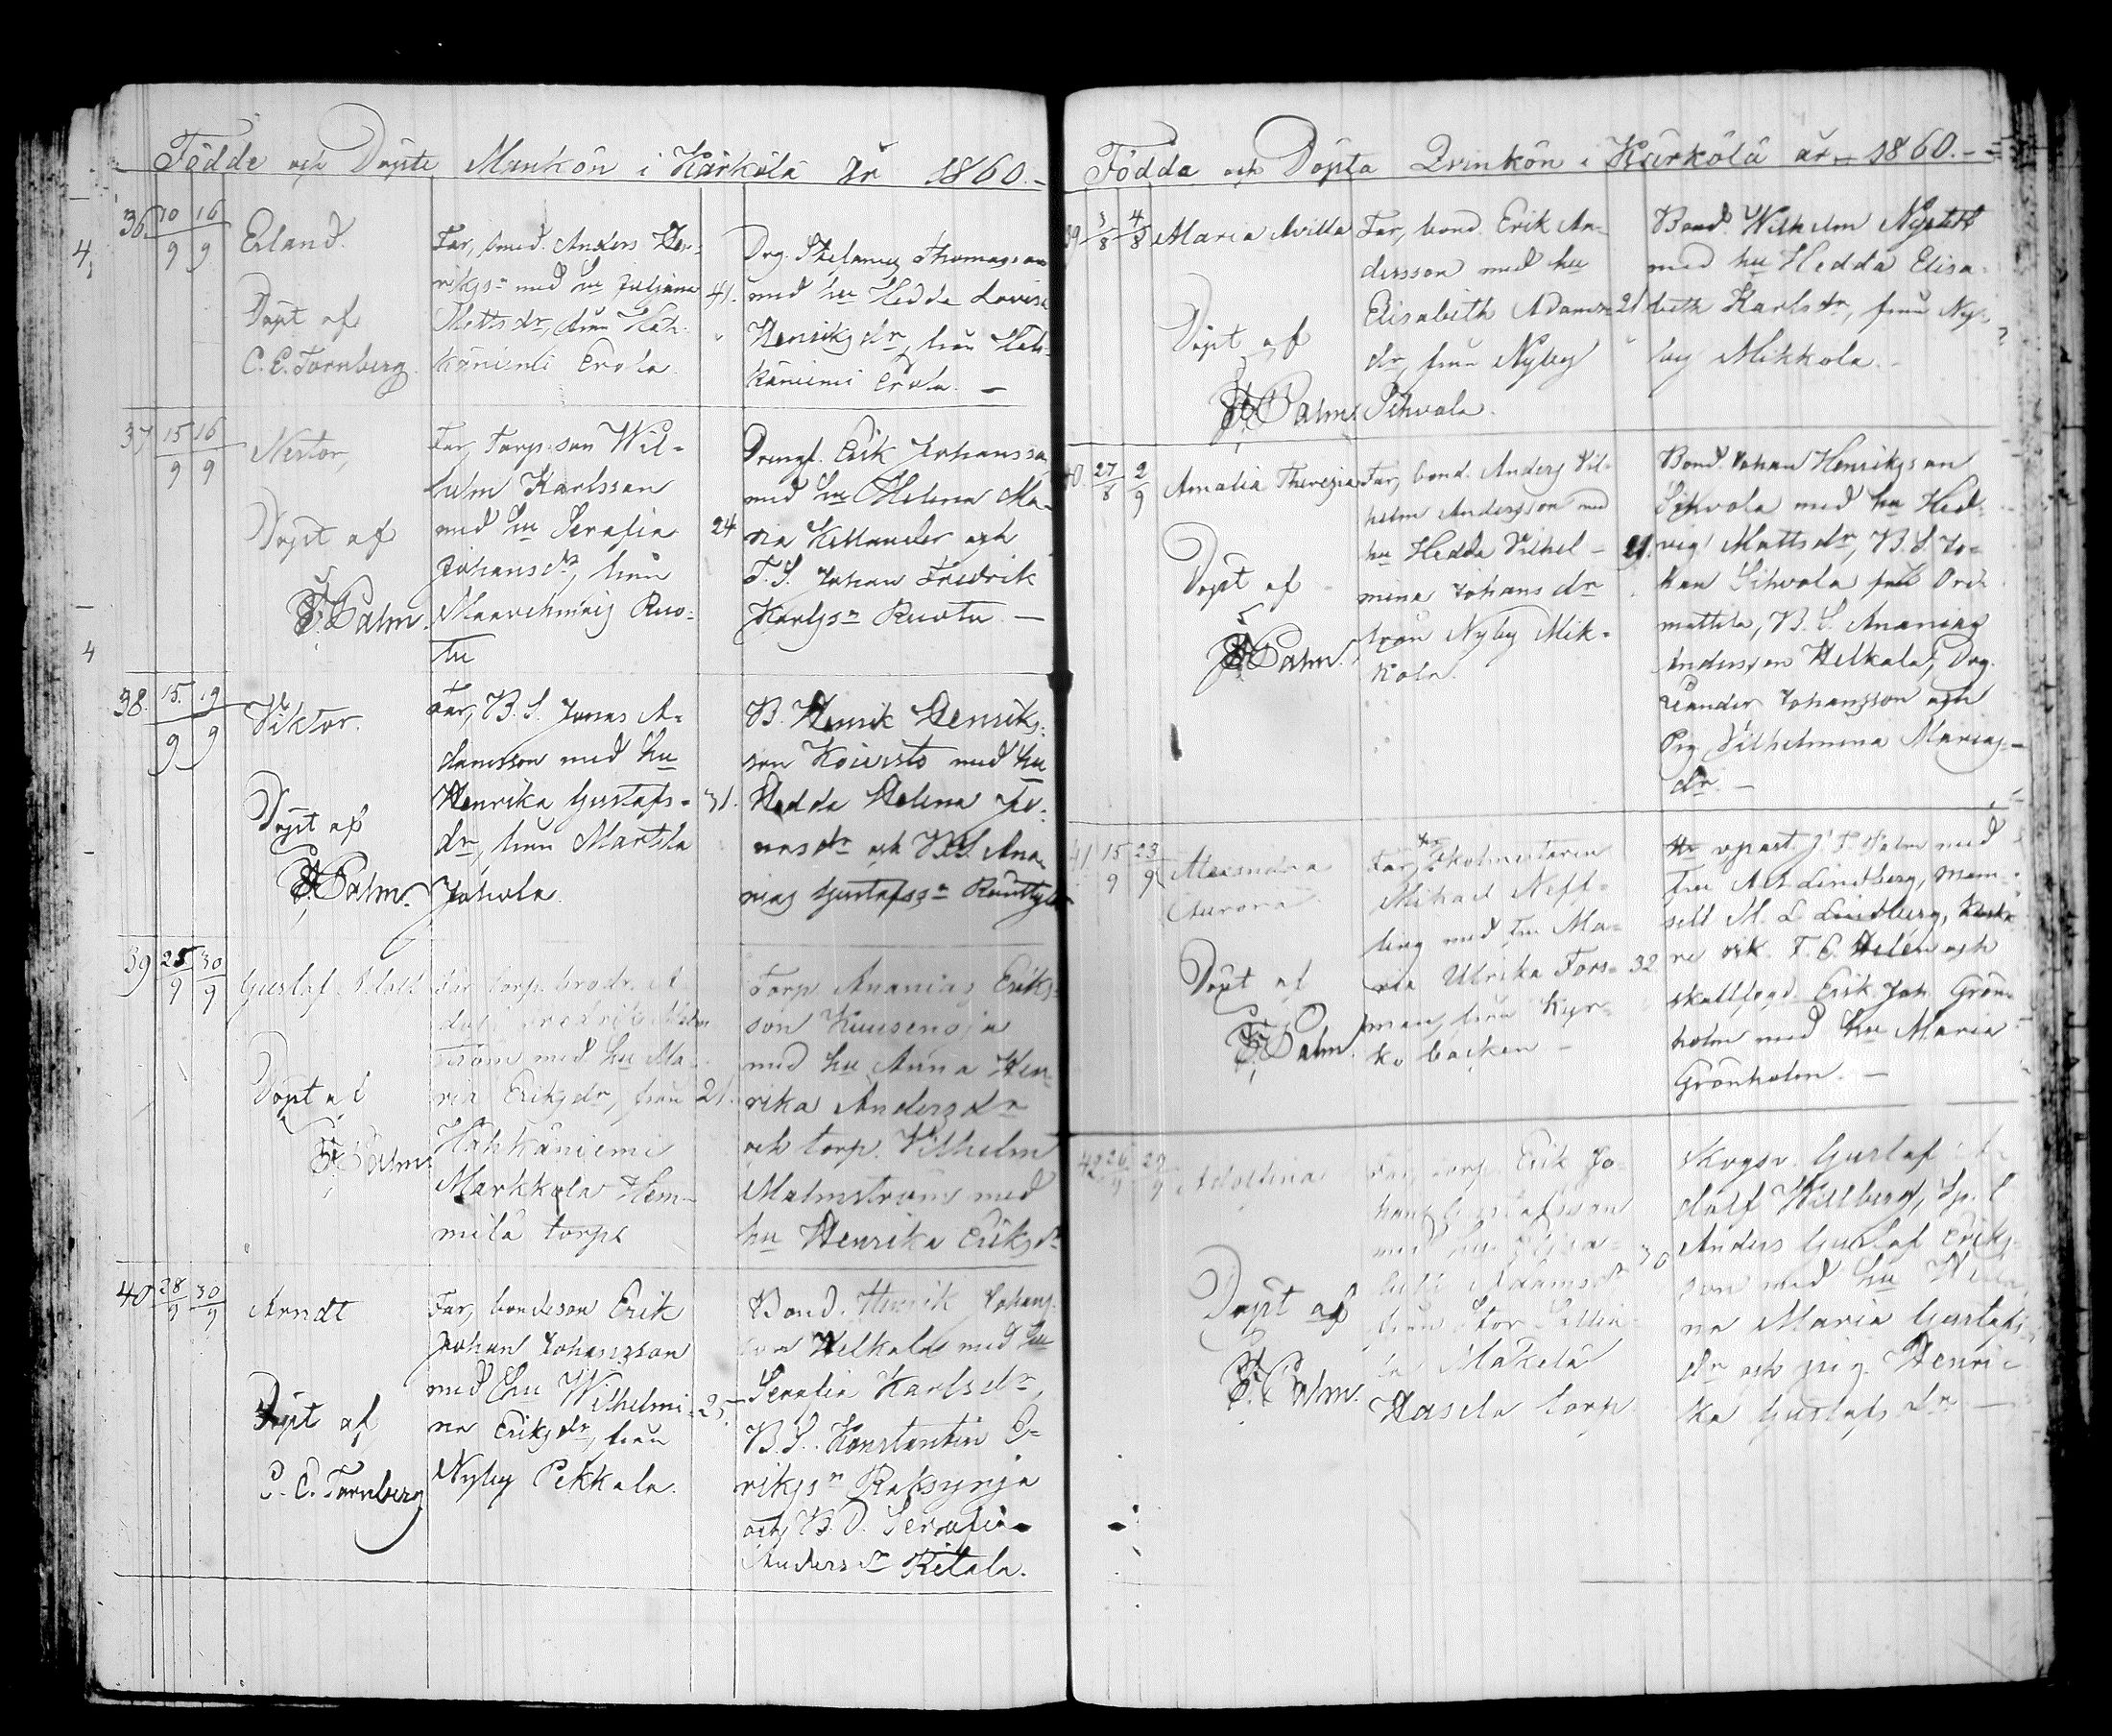 Födde och Döpte Mankön i Kärkölä år 1860.-
36. 10/9 16/9 Erland.
Döpt af
C. E. Tornberg.
Far, smed. Anders Hen-
rikss n med hu Juljana
Mattsdr, från Häh-
käniemi Erola.
41.
Drg. Thomasson
med hu Hedda Lovisa
Henriksdr, från Häh-
käniemi Erola. —
37 15/9 16/9 Nestor,
Döpt af
F. Palm.
Far, Torp. son Wil-
helm Karlsson
med hu Serafia
Johansdr, från
Maavehmais Ruo-
tu
24
Drengl. Erik Johansson
med hu Helena Ma-
ria Kellander och
T. S. Johan Fredrik
Karlss n Ruotu —
38. 15/9 19/9 Viktor.
Döpt af
F. Palm.
Far, B. S. Jonas A-
damsson med hu
Henrika Gustafs-
dr, från Marttila
Johola.
31.
B. Henrik Henriks-
son Koivisto med hu
Hedda Helena Jo-
nasdr och B. S. Ana-
nias Gustafss n
39 25/9 30/9 Gustaf
Döpt af
F. Palm
Far torp. brodr. A
Fredrik Malm
ström med hu Ma-
ria Eriksdr, från
Hähkäniemi
Markkola Hem-
milä torp
21.
Torp Ananias Eriks-
son Kuusenoja
med hu Anna Hen-
rika Andersdr
och torp. Vilhelm
Malmström med
hu Henrika Eriksdr
40 28/9 30/9 Arndt
Döpt af
C. E. Tornberg
Far, bondeson Erik
Johan Johansson
med hu Wilhelmi-
na Eriksdr, från
Nyby Pekkala.
25.
Bond. Henrik Johans-
son Helkala med hu
Serafia Karlsdr,
B. S. Konstantin E-
rikss n
och B. D. Serafia
Andersdr Ritala.
Födda och Döpta Qvinkön i Kärkölä år 1860.-
39 3/8 4/8 Maria Avilla
Döpt af
F. Palm.
Far, bond. Erik An-
dersson med hu
Elisabeth Adams-
dr, från Nyby
Sihvola.
21
Bond. Wilhelm
med hu Hedda Elisa-
beth Karlsdr, från Ny-
by Mikkola. -
40. 27/8 2/9 Amalia Theresia
Döpt af
F. Palm.
Far, bond. Anders Vil-
helm Andersson med
hu Hedda Vilhel-
mina Johansdr
från Nyby Mik-
kola.
21.
Bond. Johan Henriksson
Sihvola med hu Hed-
vig Mattsdr, B. S. Jo-
han Sihvola från Ori-
mattila, B. S. Ananias
Andersson Helkala, Drg.
Leander Johansson och
Pig. Vilhelmina Marias-
dr. —
41 15/9 23/9 Alexandra
Aurora
Döpt af
F. Palm.
Far, Skolmästaren
Mikael Neff-
ling med fru Ma-
ria Ulrika Fors-
man, från Kyr-
kobacken —
32
Hr med
fru A. Lindberg, Mam-
sell M. L. Lindberg,
vik. F. E. Helén och
skallfogd. Erik Joh. Grön-
holm med hu Maria
Grönholm. —
42 26/9 29/9 Adolfina
Döpt af
F. Palm.
Far, torp. Erik Jo-
han Gustafsson
med hu
Adamsdr
från Stor
Mäkelä
Hasela torp
30
Skogsv. Gustaf A-
dolf Willberg,
Anders Gustaf Eriks-
son med hu
na Maria Gustafs-
dr och pig. Henri-
ka Gustafsdr —